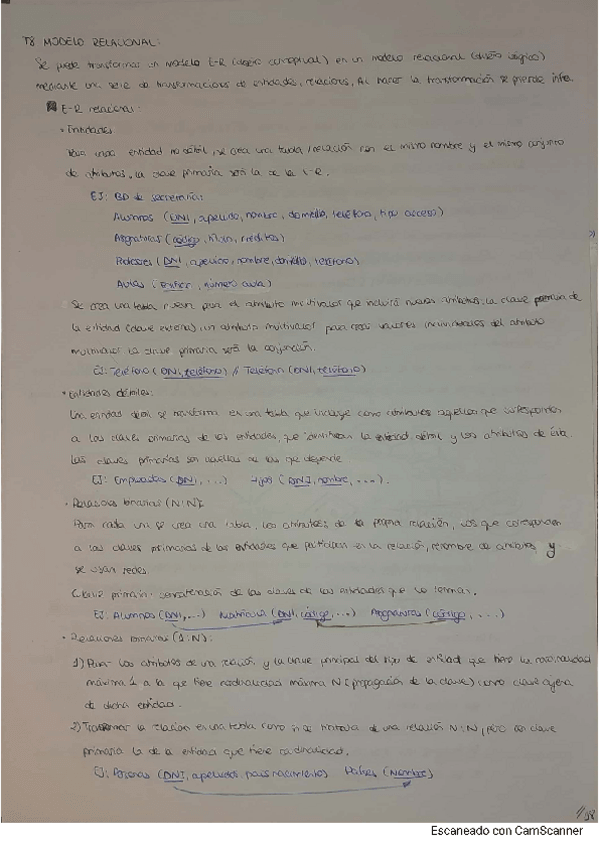 T8 MODELO RELACIONAL:
Se puede transformar un modelo E-R (diseño conceptual) en un modelo relacional (diseño lógico)
mediante una serie de transformaciones de entidades, relaciones. Al hacer la transformación se pierde info.
E-R relacional:
• Entidades
Para cada entidad no débil, se crea una tabla/relación con el mismo nombre y el mismo conjunto
de atributos, la clave primaria será la de la E-R.
EJ: BD de secretaría:
Alumnos (DNI, apellido, nombre, domicilio, teléfono, tipo acceso)
Asignaturas (código, título, créditos)
Profesores (DNI, apellidos, nombre, domicilio, teléfono)
Aulas (edificio, número aula)
Se crea una tabla nueva para el atributo multivalor que incluirá nuevos atributos: la clave primaria de
la entidad (clave externa), un atributo multivalor para cada valores individuales del atributo
multivalor. La clave primaria será la conjunción.
EJ: Teléfono (DNI, teléfono) Teléfono (DNI, teléfono)
• Entidades débiles:
Una entidad débil se transforma en una tabla que incluye como atributos aquellos que corresponden
a las claves primarias de las entidades, que identifican la entidad débil y los atributos de ésta.
Las claves primarias son aquellas de las que depende
EJ: Empleados (DNI, ...) Hijos (DNI, nombre, ...).
• Relaciones binarias (N:N):
Para cada una se crea una tabla, los atributos de la propia relación, los que corresponden
a las claves primarias de las entidades que participan en la relación, de y
se usan
Clave primaria: concatenación de las claves de las entidades que
EJ: Alumnos (DNI, ...) Matrícula (DNI, código, ...) Asignaturas (código, ...)
• Relaciones binarias (1:N):
1) Pasar los atributos de una relación y la clave principal del tipo de entidad que tiene la cardinalidad
máxima 1 a la que tiene cardinalidad máxima N (propagación de la clave) como clave ajena
de dicha entidad.
2) Transformar la relación en una tabla como si se tratara de una relación N:N, pero con clave
primaria la de a entidad que tiene cardinalidad.
EJ: Personas (DNI, apellidos, país nacimiento) Países (Nombre)
Escaneado con CamScanner